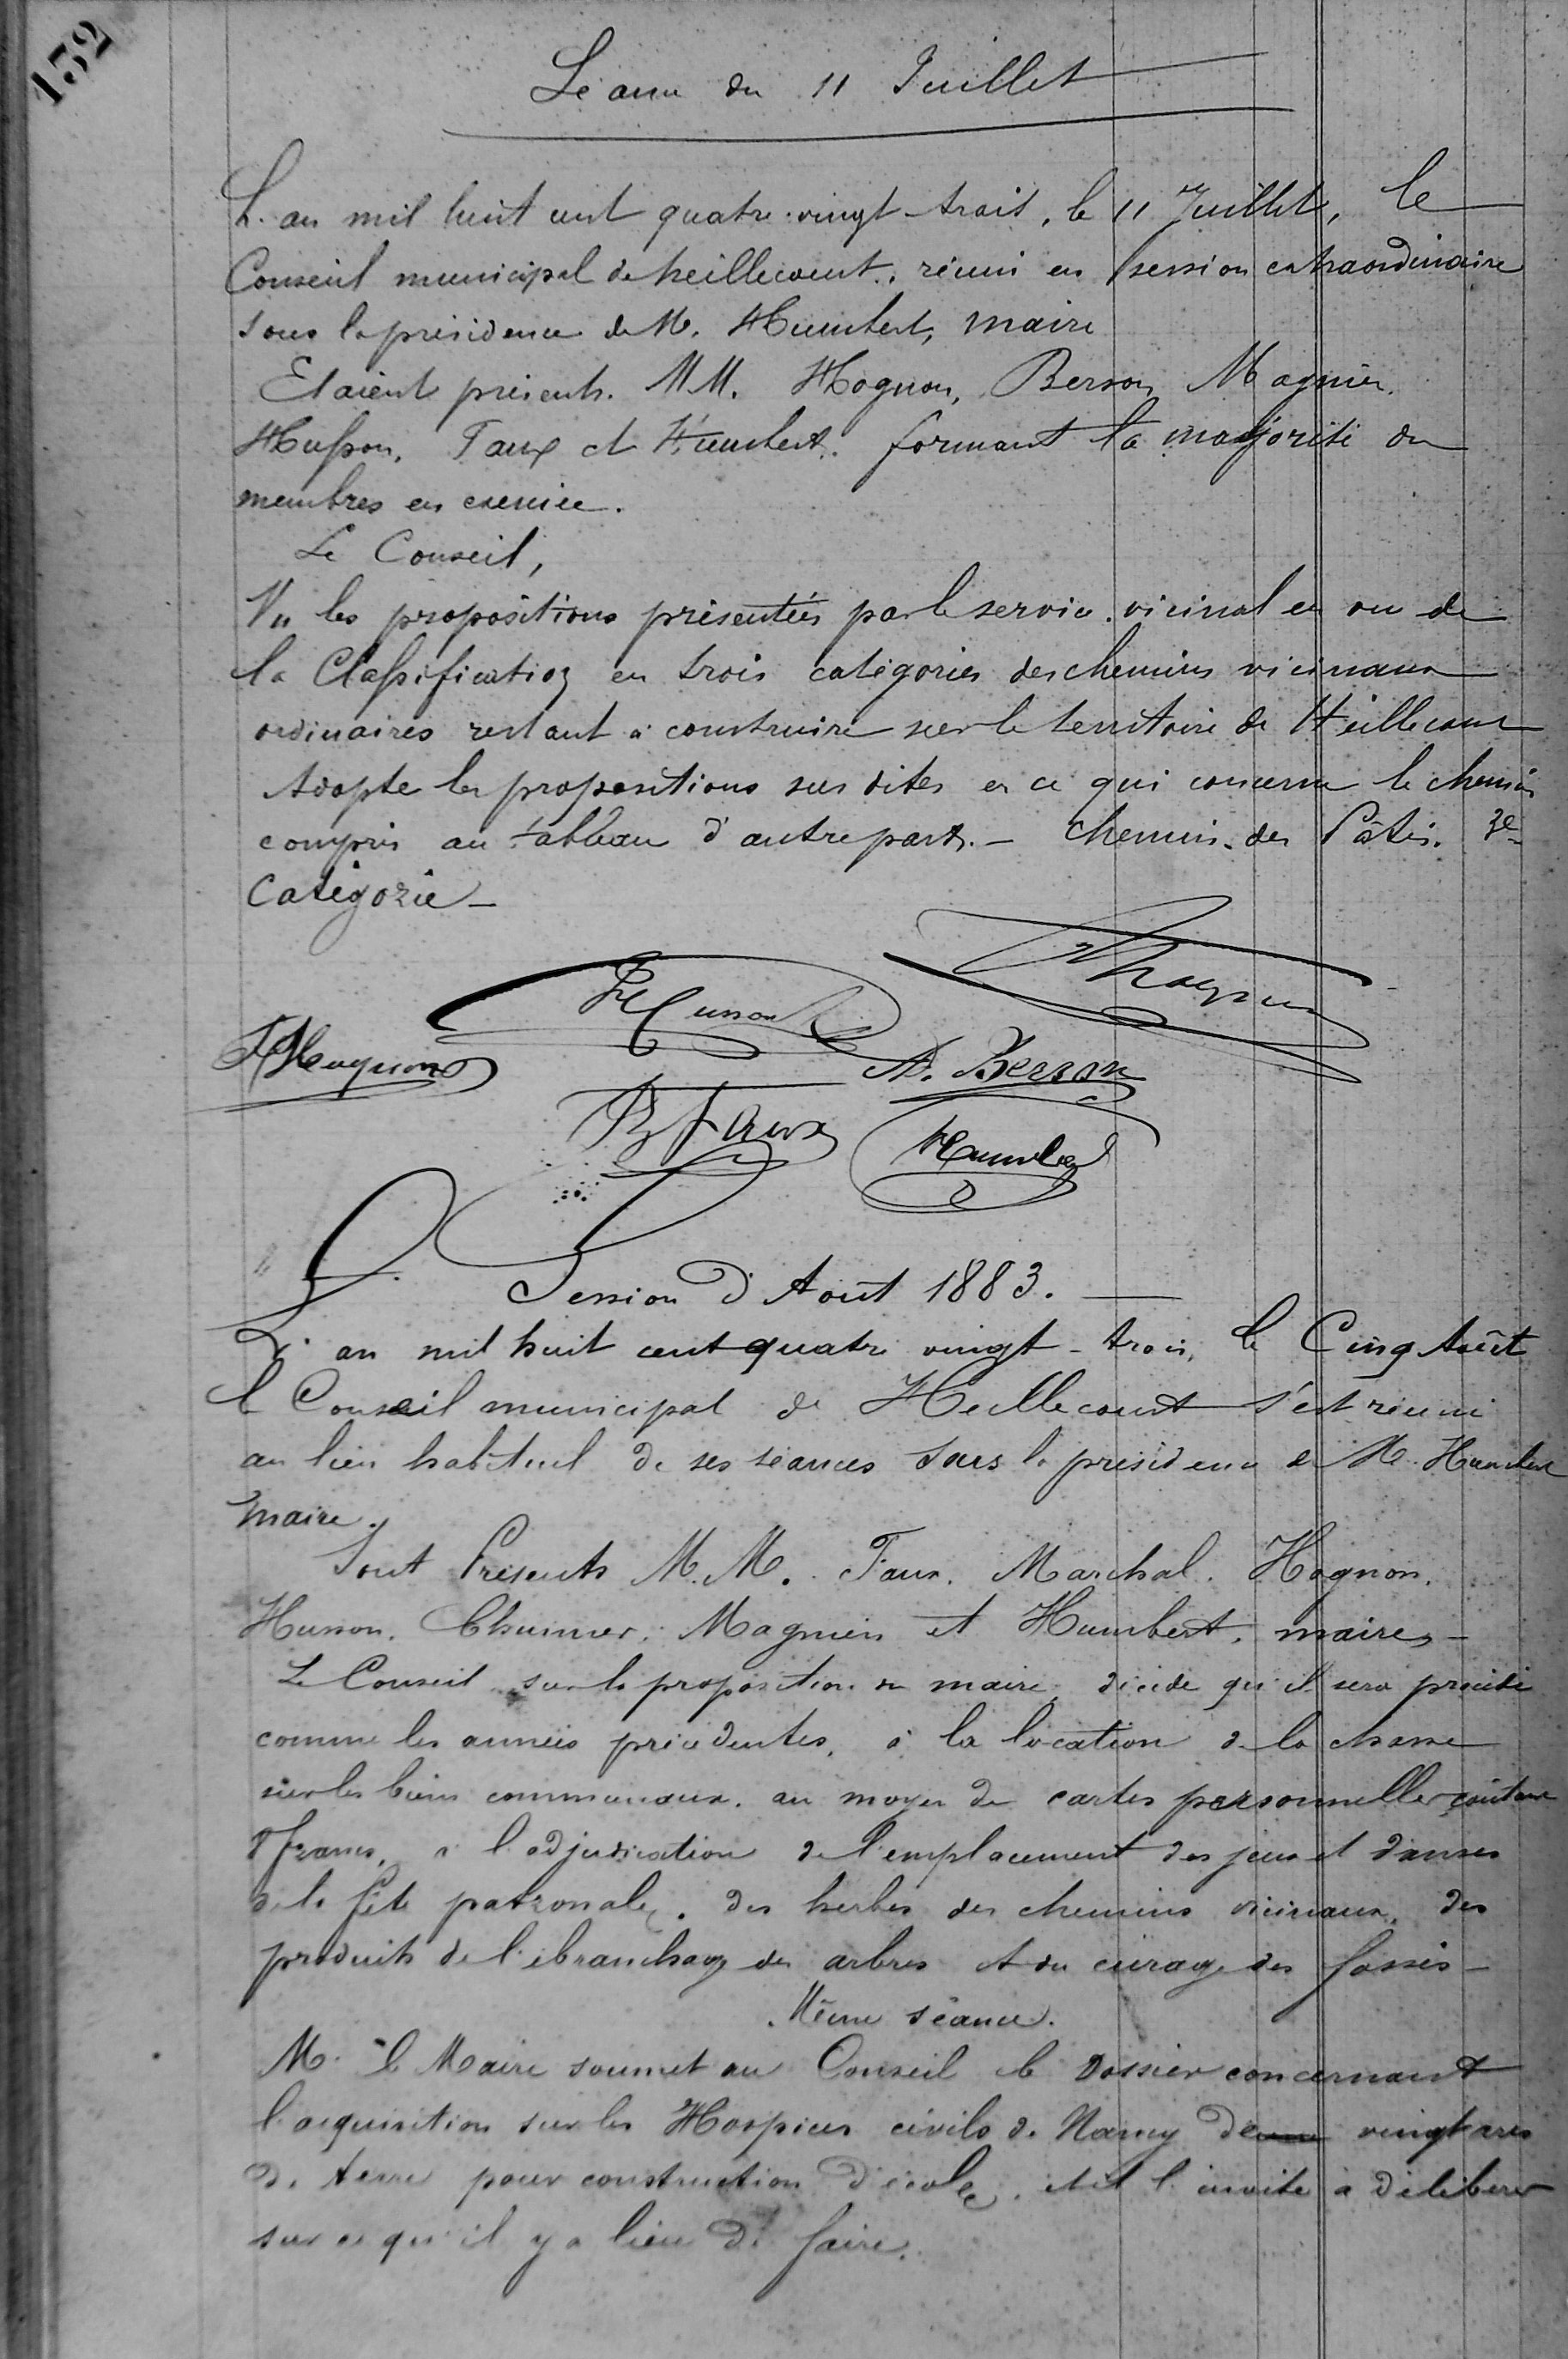 132
Séance du 11 Juillet
L'an mil huit cent quatre-vingt-trois, le 11 Juillet, le
Conseil municipal de heillecourt, réuni en session extraordinaire
sous la présidence de M. Humbert, maire
Etaient présents. MM. Hognon, Berson, Magnien,
Husson, Faux et Humbert. formant la majorité des
membres en exercice.
Le Conseil,
Vu les propositions présentées par le service vicinal en vue de
la Classification en trois catégories des chemins vicinaux
ordinaires restant à construire sur le territoire de Heillecourt
Adopte les propositions sus dites en ce qui concerne le chemin
compris au tableau d'autre part. - Chemin des Pâtis. 3e
Catégorie -
Magnien
Husson
Hognon
A. Berson
B Faux
Humbert
Session d'Août 1883.
L'an mil huit cent quatre vingt-trois, le Cinq Août
le Conseil municipal de Heillecourt s'est réuni
au lieu habituel de ses séances sous la présidence de M. Humbert
maire.
Sont Présents M.M. Faux. Marchal. Hognon.
Husson. Magnien et Humbert, maire -
Le Conseil sur la proposition du maire, décide qu'il sera procédé
comme les années précédentes, à la location de la chasse
sur les biens communaux, au moyen de cartes personnelles coûtant
8 francs, à l'adjudication de l'emplacement des jeux et danses
de la fête patronale, des herbes des chemins vicinaux, des
produits de l'ébranchage des arbres et du curage des fossés -
Même séance.
M. le Maire soumet au Conseil le Dossier concernant
l'acquisition sur les Hospices civils de Nancy de vingt ares
de terre pour construction d'école, et il l'invite à délibérer
sur ce qu'il y a lieu de faire.